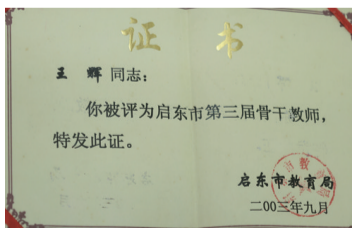 证书
王辉同志：
你被评为启东市第三届骨干教师，
特发此证。
启东市教育局
二00三年九月